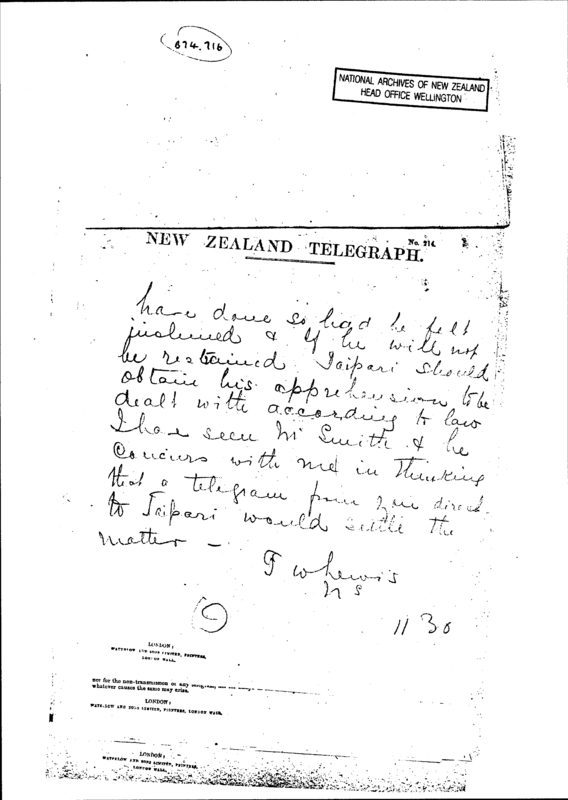 874.716
NATIONAL ARCHIVES OF NEW ZEALAND
HEAD OFFICE WELLINGTON
No. 214.
NEW ZEALAND TELEGRAPH.
have done so had he felt
inclined & if he will not
be restrained Taipari should
obtain his apprehension to be
dealt with according to law
I have seen Mr Smith & he
Concurs with me in thinking
that a telegram from you direct
to Taipari would settle the
matter —
11 30
LONDON:
WATERLOW AND SONS LIMITED, PRINTERS,
LONDON WALL.
nor for the non-transmission or any
whatever causes the same may arise.
LONDON:
WATERLOW AND SONS LIMITED, PRINTERS, LONDON WALL.
LONDON:
WATERLOW AND SONS LIMITED, PRINTERS,
LONDON WALL.